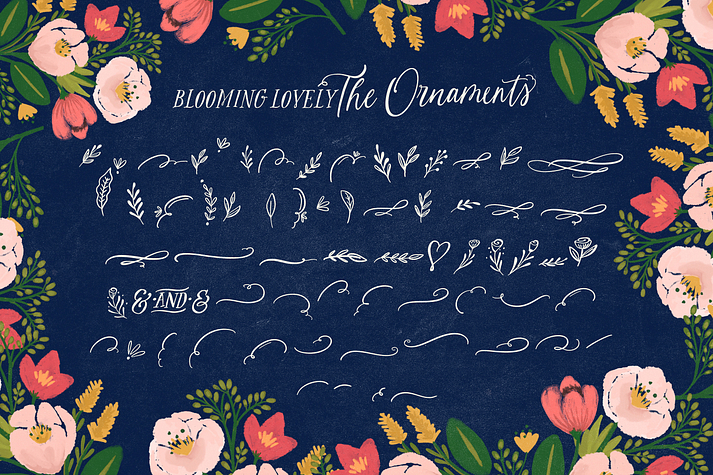 BLOOMING LOVELY The Ornaments
& AND &